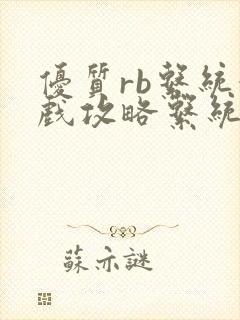 優質rb繫統
戲攻略繫統
蘇亦謎